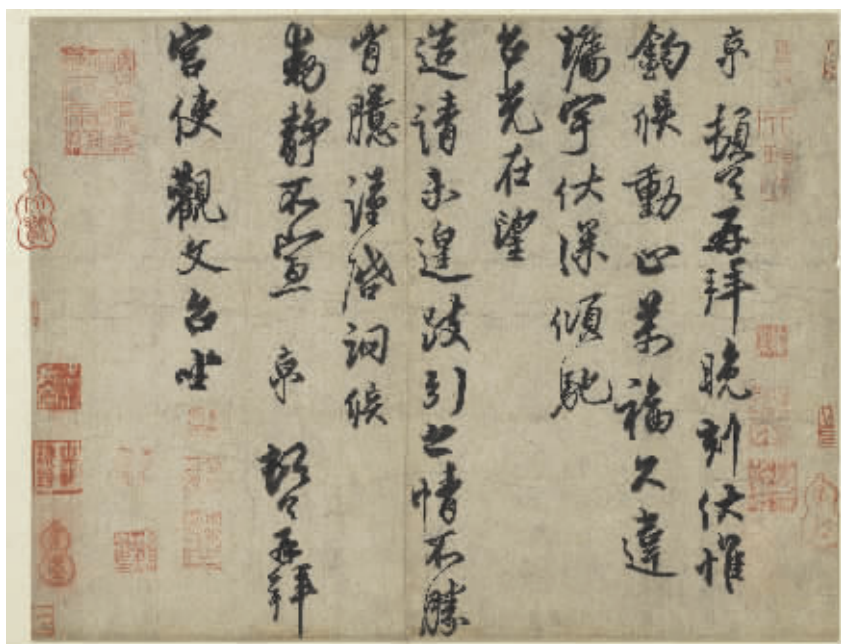 京頓首再拜晚刻伏惟
鈞候動止萬福久違
墉宇伏深傾馳
台光在望
造請未遑跂引之情不勝
胷臆謹啓詞候
動靜不宣 京 頓首再拜
宮使觀文台坐